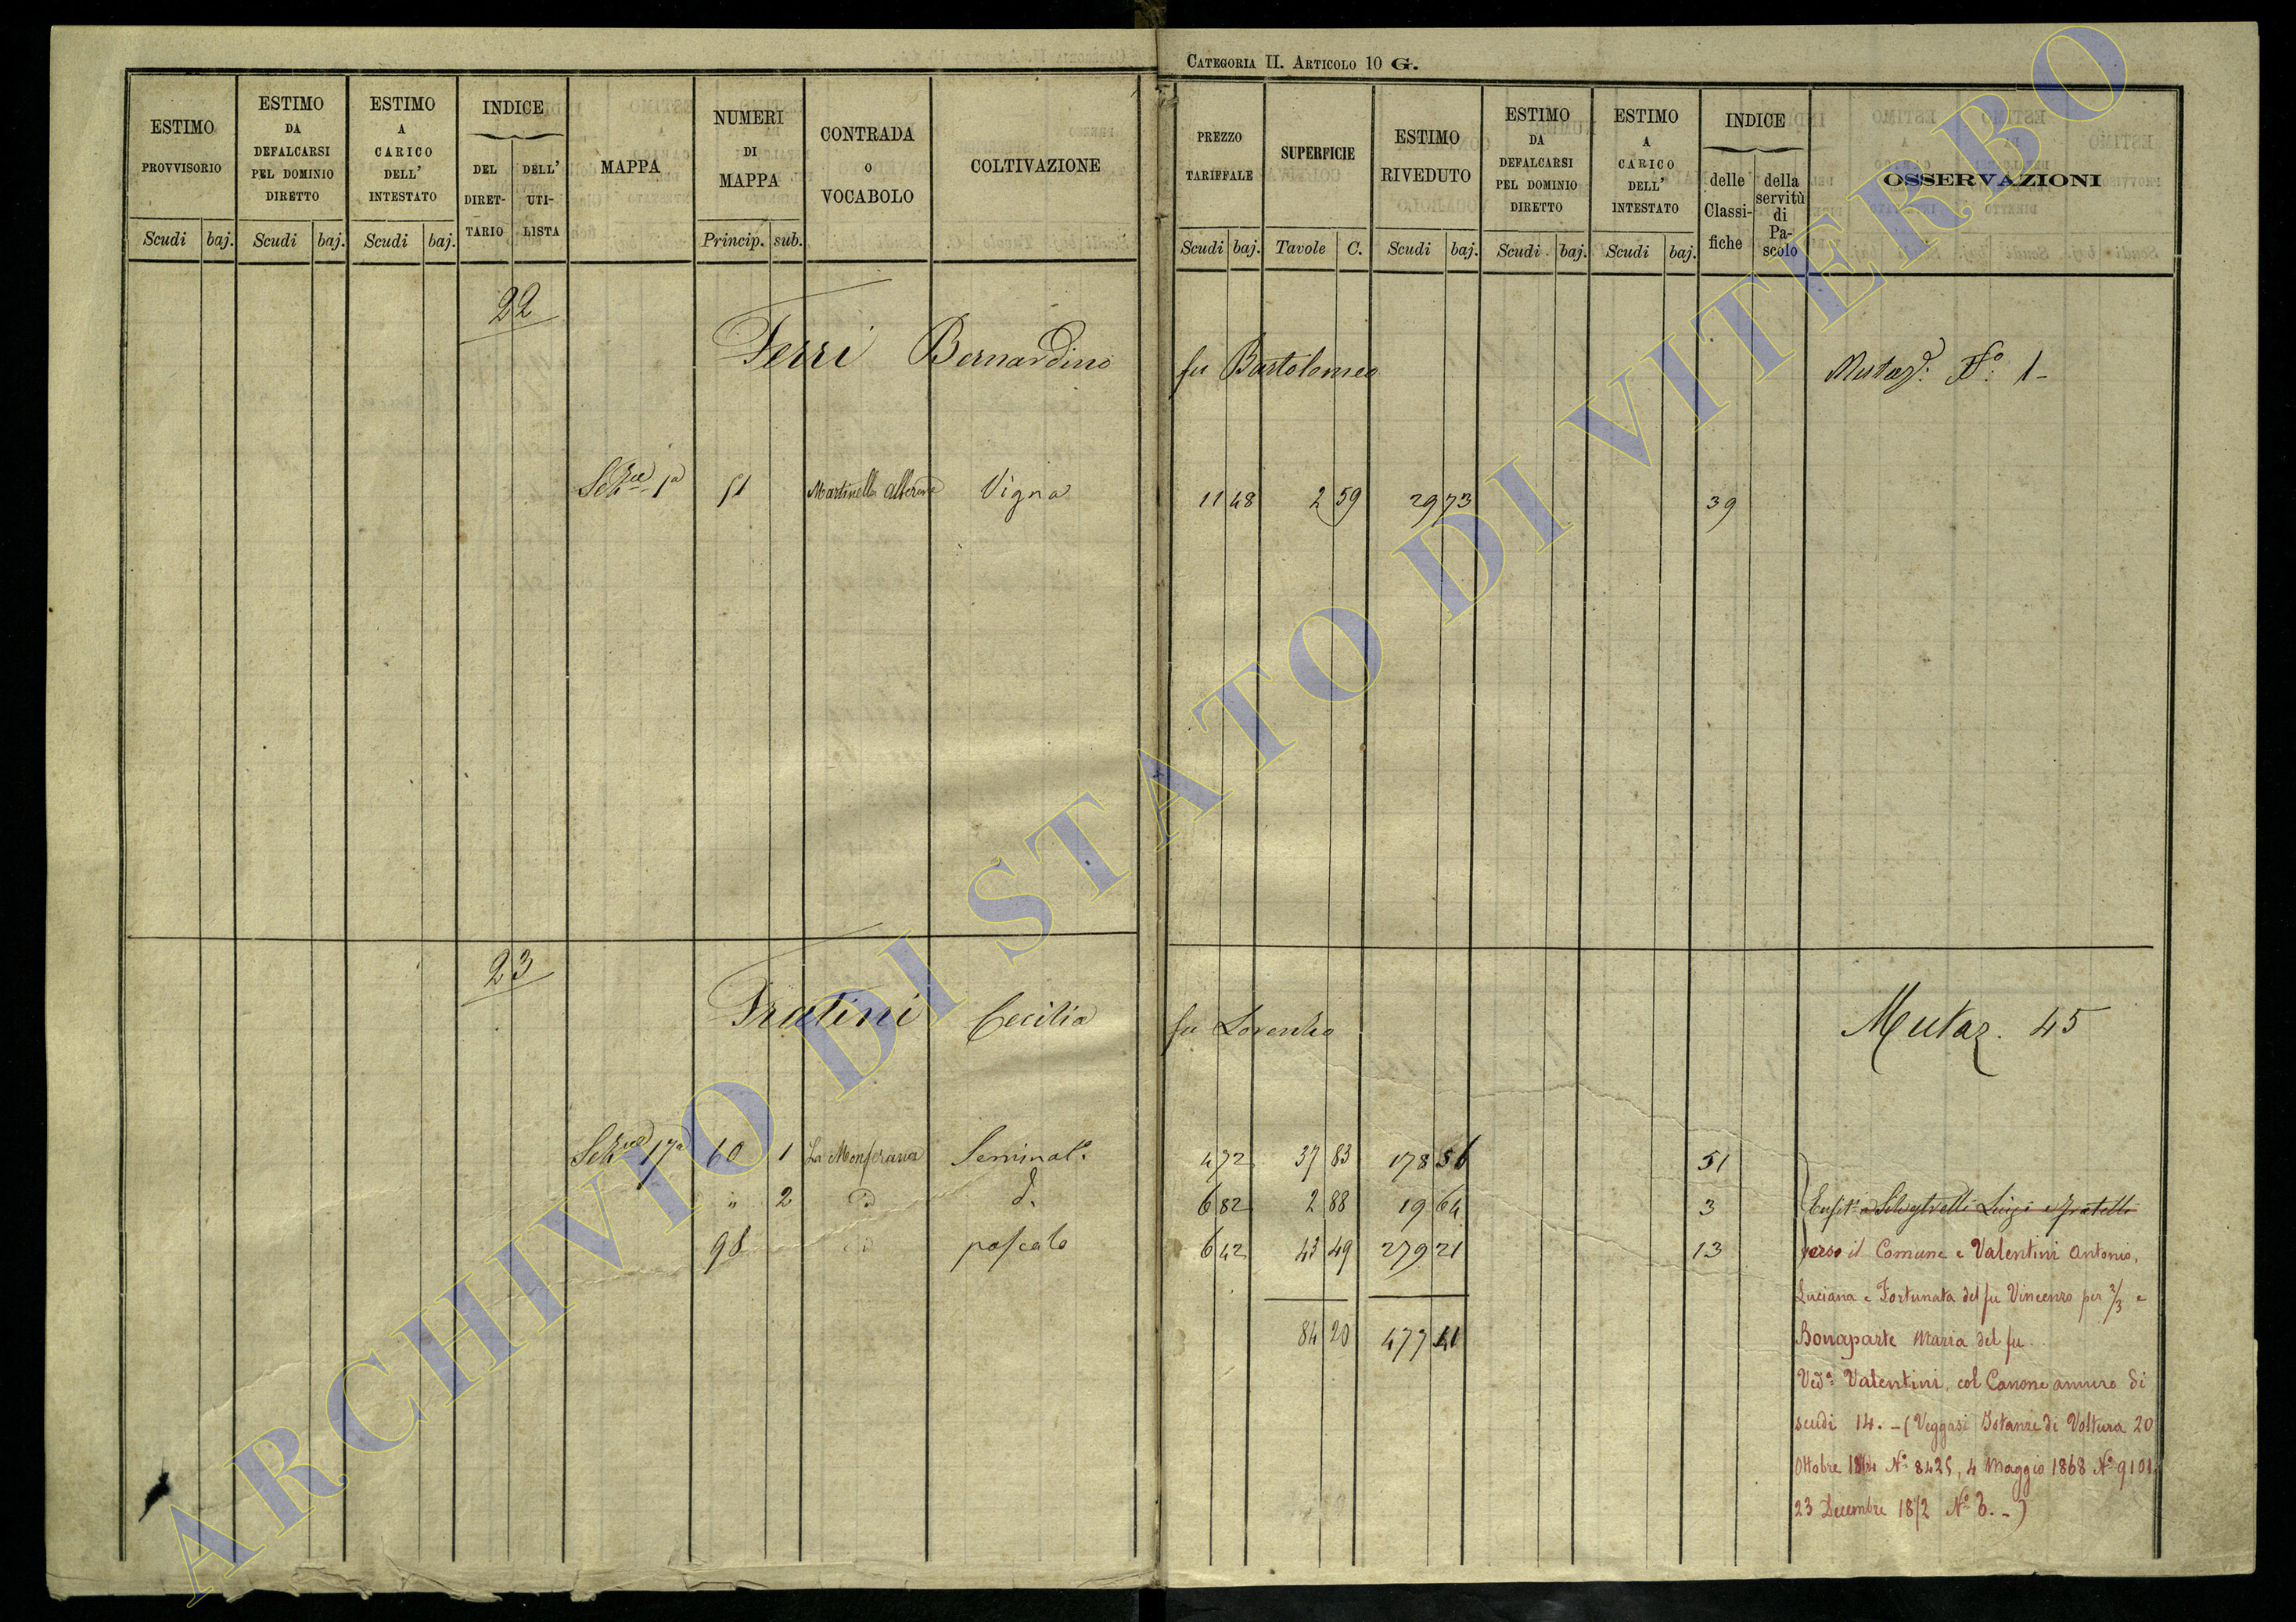 CATEGORIA II. ARTICOLO 10 G.
ESTIMO PROVVISORIO
ESTIMO DA DEFALCARSI PEL DOMINIO DIRETTO
ESTIMO A CARICO DELL' INTESTATO
INDICE
DEL DIRET-TARIO
DELL' UTI-LISTA
MAPPA
NUMERI DI MAPPA
CONTRADA O VOCABOLO
COLTIVAZIONE
PREZZO TARIFFALE
SUPERFICIE
ESTIMO RIVEDUTO
ESTIMO DA DEFALCARSI PEL DOMINIO DIRETTO
ESTIMO A CARICO DELL' INTESTATO
INDICE
delle Classi-fiche
della servitù di Pa-scolo
OSSERVAZIONI
Scudi baj. Scudi baj. Scudi baj. Princip. sub. Scudi baj. Tavole C. Scudi baj. Scudi baj. Scudi baj.
22
Ferri Bernardino fu Bartolomeo No. 1
1a 51 Martinella Vigna 11 48 2 59 29 73 39
23
Fratini Cecilia fu Lorenzo Mutaz. 45
17a 60 1 La Monferrana Seminat.o 4 72 37 83 178 56 51
" 2 d. 6 82 2 88 19 64 3 Luigi e fratelli
98 pascolo 6 42 43 49 279 21 13 verso il Comune e Valentini Antonio,
Luciana e Fortunata del fu Vincenzo per 2/3 e
84 20 477 41 Bonaparte Maria del fu..
Ved.a Valentini, col Canone annuo di
scudi 14. - (Veggasi Istanze di Voltura 20
Ottobre 1864 No. 8425, 4 Maggio 1868 No. 9101,
23 Decembre 1872 No. 3. -)
ARCHIVIO DI STATO DI VITERBO